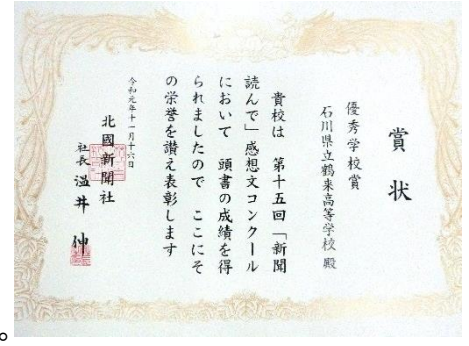 賞状
優秀学校賞
石川県立鶴来高等学校 殿
貴校は 第十五回 「新聞
読んで」感想文コンクール
において 頭書の成績を得
られましたので ここにそ
の栄誉を讃え表彰します
令和元年十一月十六日
北國新聞社
社長 温井 伸